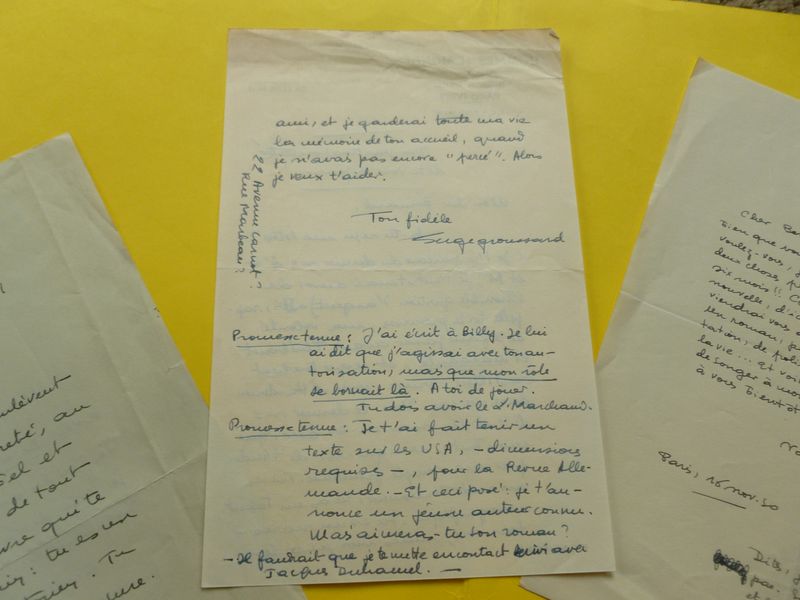 ami, et je garderai toute ma vie
la mémoire de ton accueil, quand
je n'avais pas encore "percé". Alors
je veux t'aider.
22 Avenue Carnot.
Rue Marbeau?
Ton fidèle
Sergegroussard
Promesse tenue : J'ai écrit à Billy. Je lui
ai dit que j'agissai avec ton au-
torisation, mais que mon rôle
se bornait là. A toi de jouer.
Tu dois avoir le Marchand.
Promesse tenue : Je t'ai fait tenir un
texte sur les USA, - dimensions
requises -, pour la Revue Alle-
mande. - Et ceci posé : je t'an-
nonce un jeune auteur connu.
Mais aimeras-tu son roman?
- Il faudrait que je te mette en contact suivi avec
Jacques Duhamel. -
enlèvent
, au
el et
de tout
qui te
: tu es un
. Tu
Cher
Bien que vou
voulez-vous, j
deux choses, p
six mois!! C
nouvelle, d'i
viendrai vous
un roman, p
tation, de
la vie... Et voi
de songer à mo
à vous Bientôt
Paris, 16 nov. 50
Dites, j
pas.
et